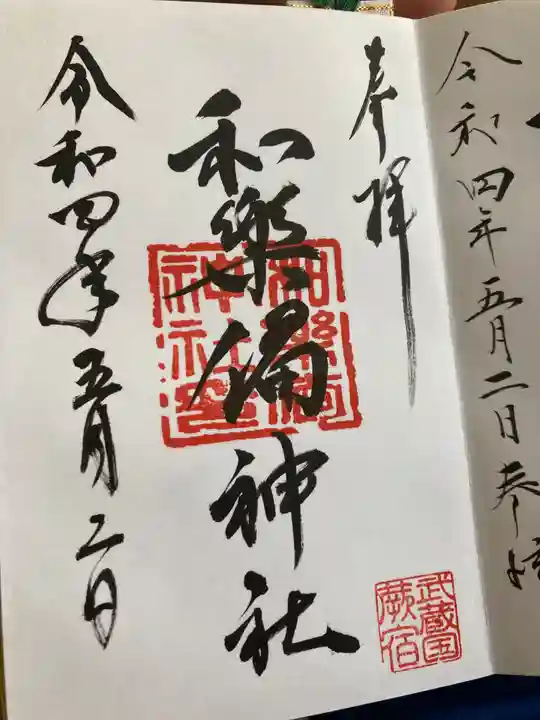 令和四年五月二日参
奉拝
和樂備神社
令和四年五月二日
和樂備
神社
武蔵国
蕨宿